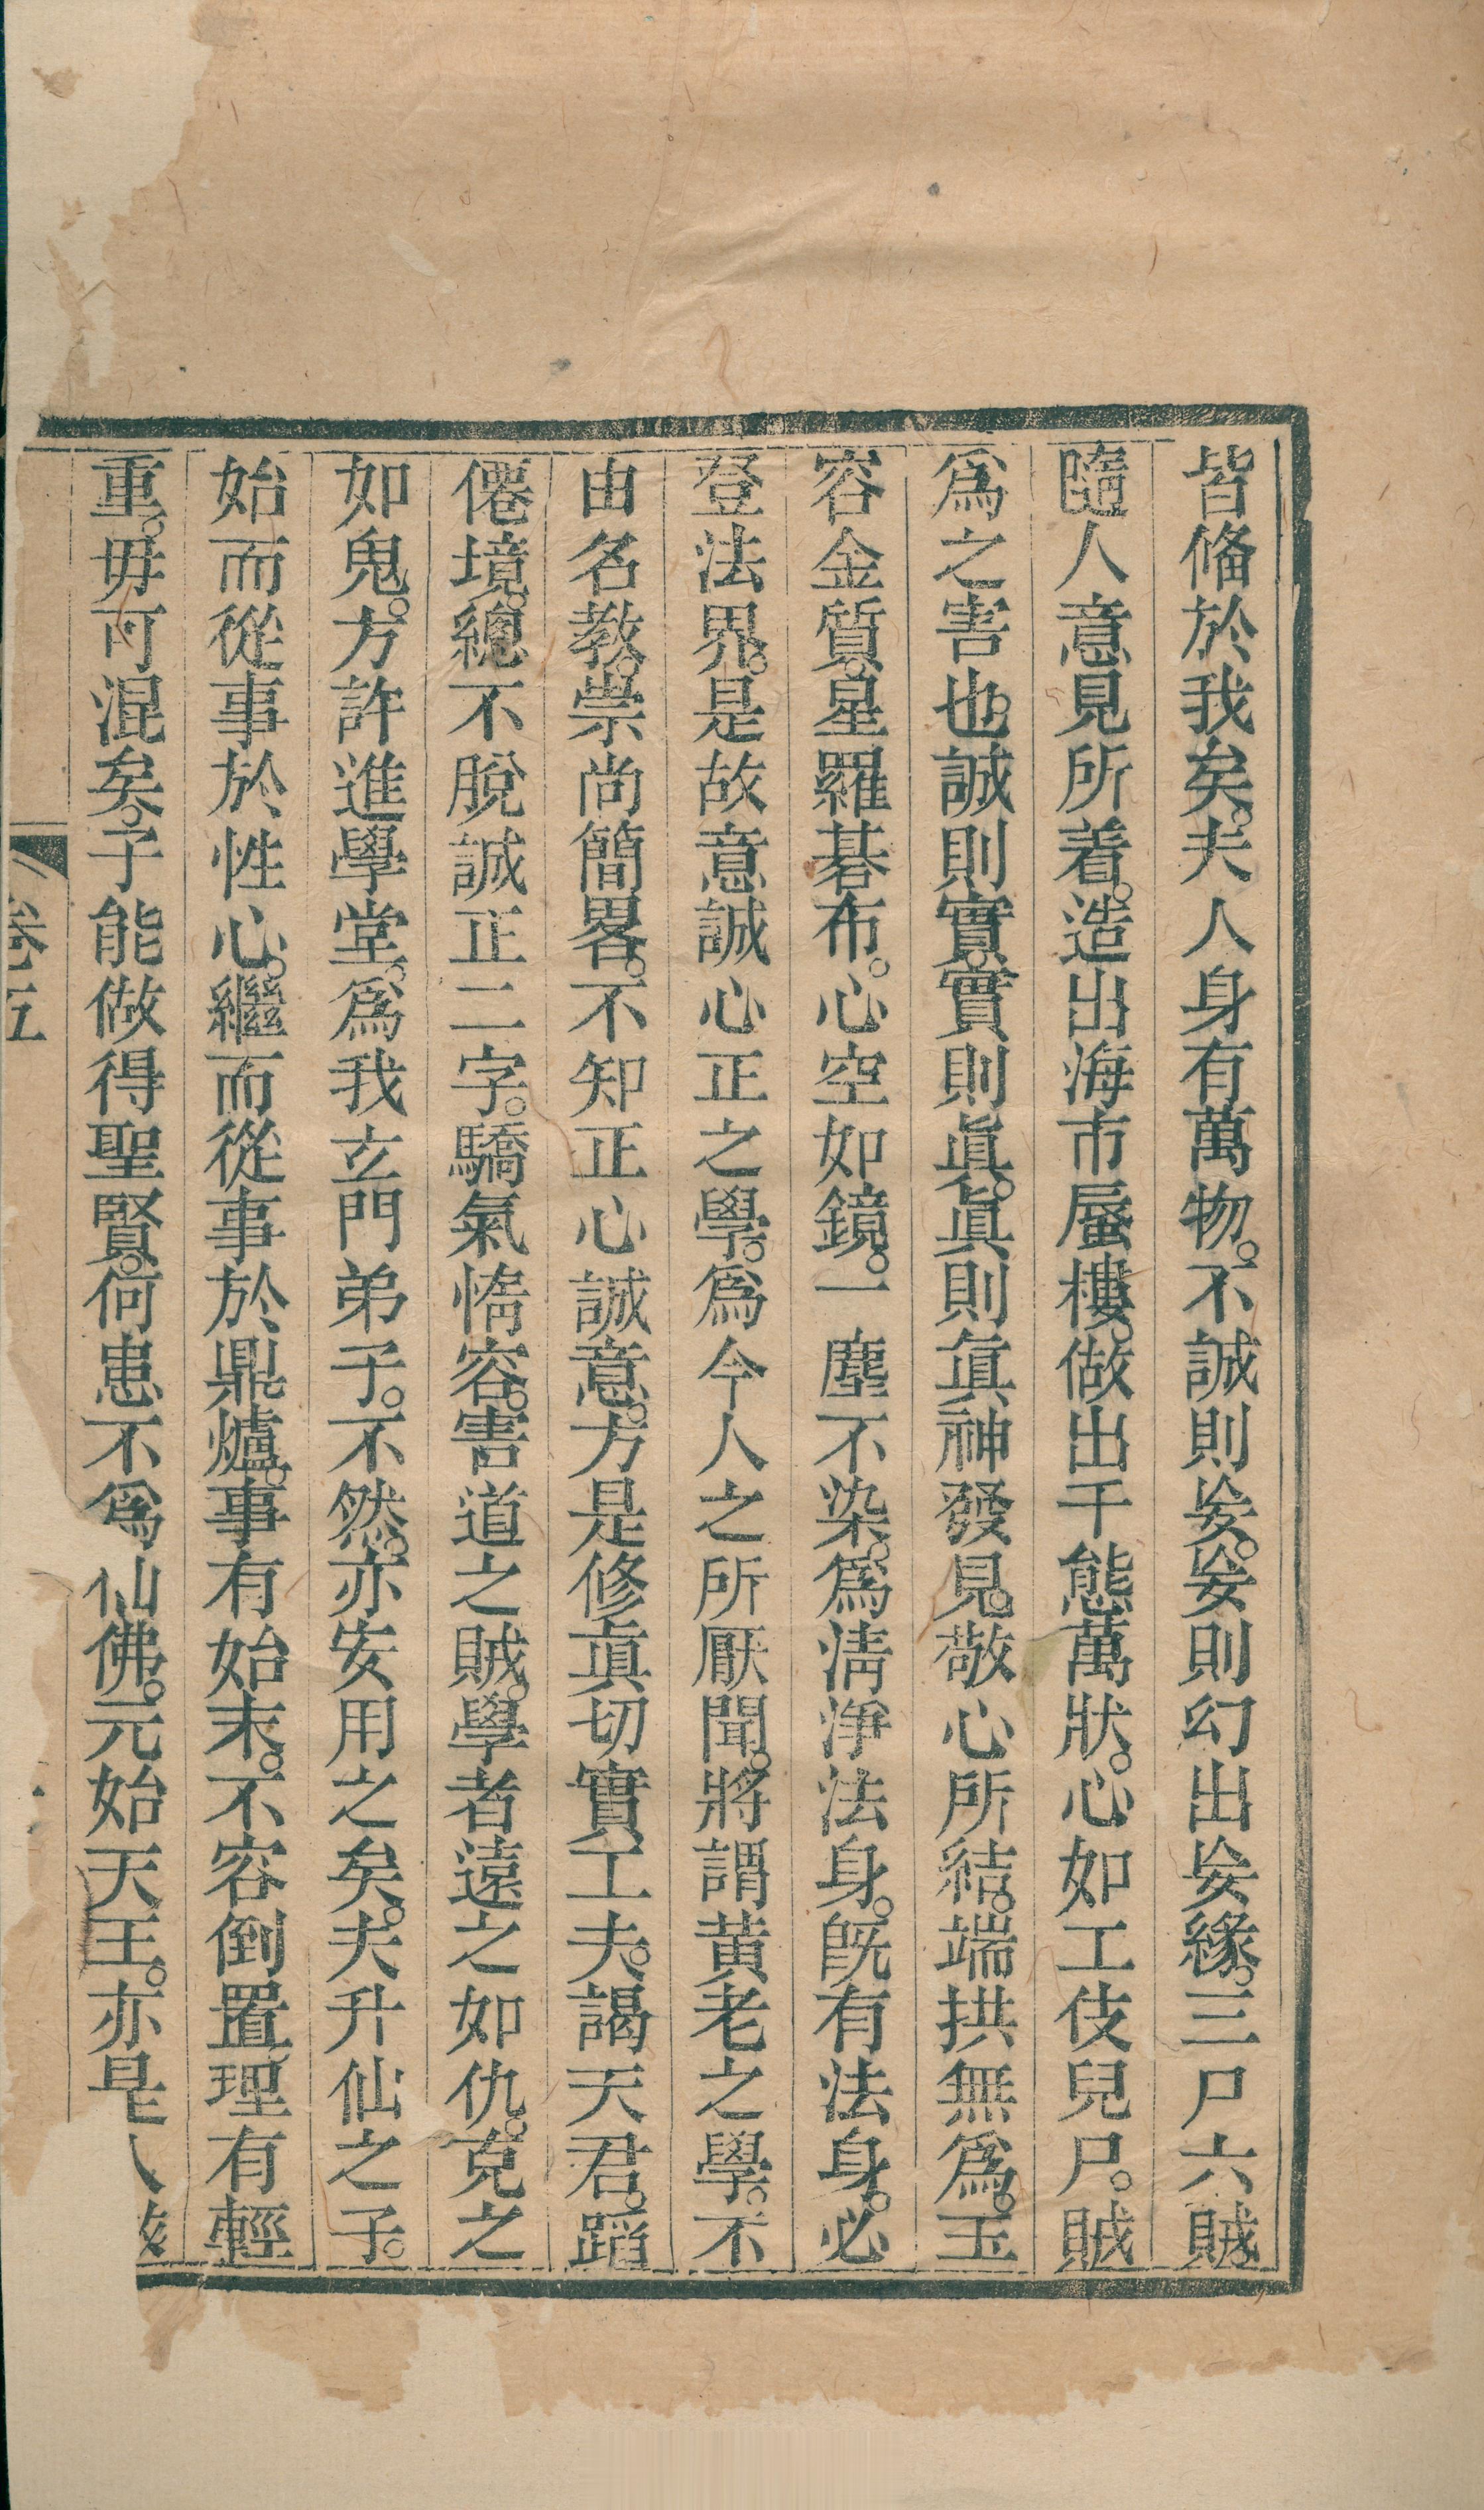 皆脩於我矣。夫人身有萬物。不誠則妄。妄則幻出妄緣。三尸六賊。
隨人意見所着。造出海市蜃樓。做出千態萬狀。心如工伎兒尸。賊
爲之害也。誠則實。實則眞。眞則眞神發見。敬心所結。端拱無爲。玉
容金質。星羅碁布。心空如鏡。一塵不染。爲淸淨法身。旣有法身。必
登法界。是故意誠心正之學。爲今人之所厭聞。將謂黃老之學。不
由名教。崇尚簡畧。不知正心誠意。方是修眞切實工夫。謁天君。蹈
僊境。總不脫誠正二字。驕氣惰容。害道之賊。學者遠之如仇。克之
如鬼。方許進學堂。爲我玄門弟子。不然。亦安用之矣。夫升仙之子。
始而從事於性心。繼而從事於鼎爐。事有始末。不容倒置。理有輕
重。毋可混矣。子能做得聖賢。何患不爲仙佛。元始天王。亦是
卷五